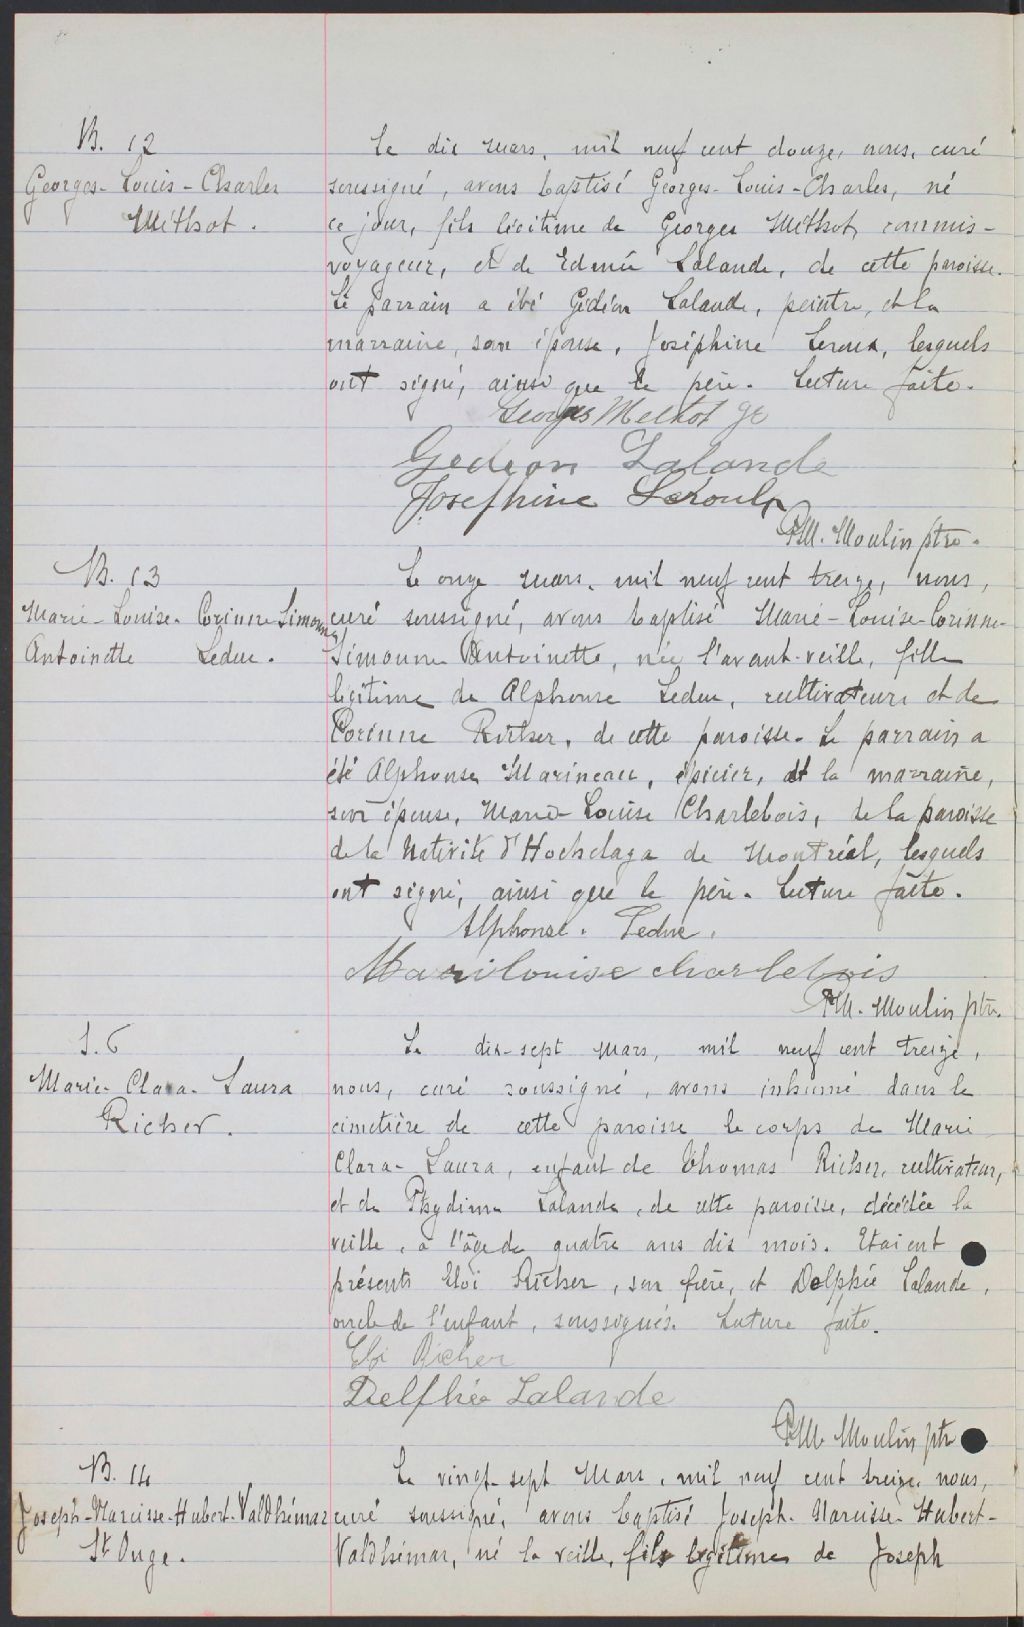 B. 12
Georges-Louis-Charles
Méthot.
Le dix mars, mil neuf cent douze, nous, curé
soussigné, avons baptisé Georges-Louis-Charles, né
ce jour, fils légitime de Georges Méthot, commis-
voyageur, et de Edmée Lalande, de cette paroisse.
Le parrain a été Gédéon Lalande, peintre, et la
marraine, son épouse, Joséphine Leroux, lesquels
ont signé, ainsi que le père. Lecture faite.
Georges Methot
Gedeon Lalande
Josephine Leroux
P.M. Moulin ptre.
B. 13
Marie-Louise-Corinne Simonne
Antoinette Leduc.
Le onze mars, mil neuf cent treize, nous,
curé soussigné, avons baptisé Marie-Louise-Corinne-
Simonne Antoinette, née l'avant-veille, fille
légitime de Alphonse Leduc, cultivateur et de
Corinne Richer, de cette paroisse. Le parrain a
été Alphonse Marineau, épicier, et la marraine,
son épouse, Marie-Louise Charlebois, de la paroisse
de la Nativité d'Hochelaga de Montréal, lesquels
ont signé, ainsi que le père. Lecture faite.
Alphonse. Leduc.
Marilouise charlebois
P.M. Moulin ptr.
S. 6
Marie-Clara-Laura
Richer.
Le dix-sept mars, mil neuf cent treize,
nous, curé soussigné, avons inhumé dans le
cimetière de cette paroisse le corps de Marie
Clara-Laura, enfant de Thomas Richer, cultivateur,
et de Lalande, de cette paroisse, décédée la
veille, à l'âge de quatre ans dix mois. Etaient
présents Eloi Richer, son frère, et Delphée Lalande,
oncle de l'enfant, soussignés. Lecture faite.
Eloi Richer
Delfhée Lalande
P.M. Moulin ptr
B. 14
Joseph-Narcisse-Hubert-Valdhémar
St Onge.
Le vingt-sept Mars, mil neuf cent treize, nous,
curé soussigné, avons baptisé Joseph-Narcisse-Hubert-
Valdhémar, né la veille, fils légitime de Joseph